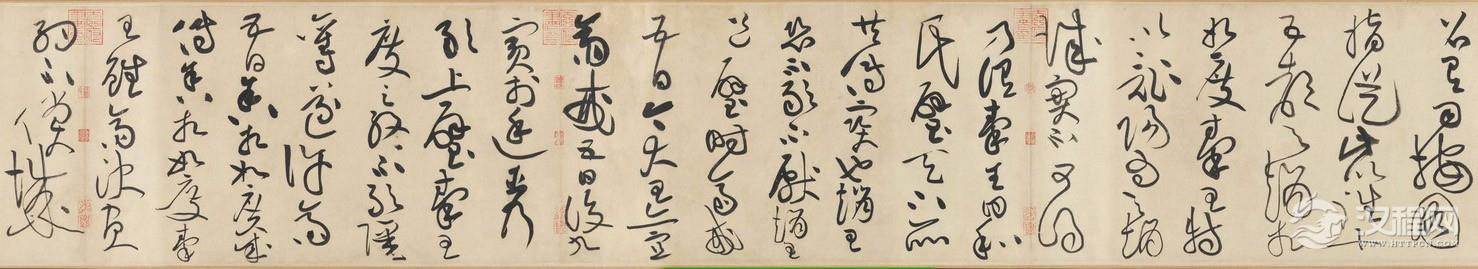 召有司按圖
指從此以往十
五都予趙相
如度秦王特
以詐陽為予趙
城實不可得
乃謂秦王曰和
氏璧天下所
共傳寶也趙王
恐不敢不獻趙王
送璧時齋戒
五日今大王亦宜
齋戒五日設九
賓於廷臣乃
敢上璧秦王
度之終不可彊
奪遂許齋
五日舍相如廣成
傳舍相如度秦
王雖齋決負
約不償城
汉程网
WWW.HTTPCN.COM